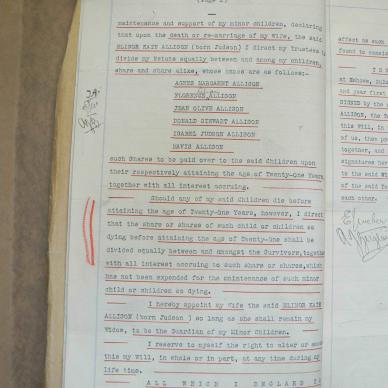 maintenance and support of my minor children, declaring
that upon the death or re-marriage of my wife, the said
ELINOR KATE ALLISON (born Judson) I direct my Trustees to
divide my Estate equally between and among my children,
share and share alike, whose names are as follows:-
AGNES MARGARET ALLISON
FLORENCE ALLISON
JEAN OLIVE ALLISON
DONALD STEWART ALLISON
ISABEL JUDSON ALLISON
MAVIS ALLISON
such Shares to be paid over to the said Children upon
their respectively attaining the age of Twenty-One Years,
together with all interest accruing.
Should any of my said Children die before
attaining the age of Twenty-One Years, however, I direct
that the share or shares of such child or children so
dying before attaining the age of Twenty-One shall be
divided equally between and amongst the Survivors, together
with all interest accruing to such share or shares, which
has not been expended for the maintenance of such minor
child or children so dying.
I hereby appoint my Wife the said ELINOR KATE
ALLISON (born Judson) so long as she shall remain my
Widow, to be the Guardian of my Minor Children.
I reserve to myself the right to alter or
this my Will, in whole or in part, at any time during my
life time.
ALL WHICH I DECLARE
affect as such
found to consist
at Eshowe,
and year first
SIGNED by the
ALLISON, the
this Will, in
of us, then
together, and
signatures
the said
of the said
each other.